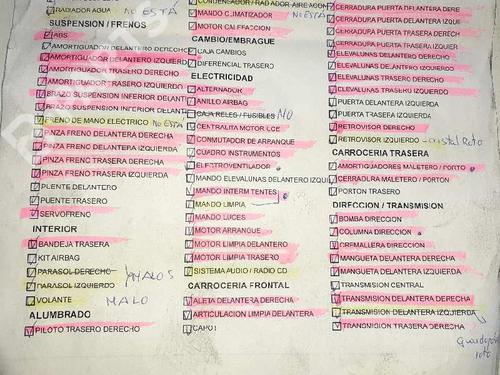 RADIADOR AGUA NO ESTÁ
SUSPENSION / FRENOS
ABS
AMORTIGUADOR DELANTERO DERECHO
AMORTIGUADOR DELANTERO IZQUIERDO
AMORTIGUADOR TRASERO DERECHO
AMORTIGUADOR TRASERO IZQUIERDO
BRAZO SUSPENSION INFERIOR DELANT
BRAZO SUSPENSION INFERIOR DELANT
FRENO DE MANO ELECTRICO NO ESTÁ
PINZA FRENO DELANTERA DERECHA
PINZA FRENO DELANTERA IZQUIERDA
PINZA FRENO TRASERA DERECHA
PINZA FRENO TRASERA IZQUIERDA
PUENTE DELANTERO
PUENTE TRASERO
SERVOFRENO
INTERIOR
BANDEJA TRASERA
KIT AIRBAG
PARASOL DERECHO MALOS
PARASOL IZQUIERDO
VOLANTE MALO
ALUMBRADO
PILOTO TRASERO DERECHO
CONDENSADOR / RADIADOR AIRE ACON
MANDO CLIMATIZADOR NO ESTÁ
MOTOR CALEFACCION
CAMBIO/EMBRAGUE
CAJA CAMBIOS
DIFERENCIAL TRASERO
ELECTRICIDAD
ALTERNADOR
ANILLO AIRBAG
CAJA RELES / FUSIBLES NO
CENTRALITA MOTOR UCE
CONMUTADOR DE ARRANQUE
CUADRO INSTRUMENTOS
ELECTROVENTILADOR
MANDO ELEVALUNAS DELANTERO IZQUI
MANDO INTERMITENTES
MANDO LIMPIA
MANDO LUCES
MOTOR ARRANQUE
MOTOR LIMPIA DELANTERO
MOTOR LIMPIA TRASERO
SISTEMA AUDIO / RADIO CD
CARROCERIA FRONTAL
ALETA DELANTERA DERECHA
ARTICULACION LIMPIA DELANTERA
CAPOT
CERRADURA PUERTA DELANTERA DERE
CERRADURA PUERTA DELANTERA IZQUI
CERRADURA PUERTA TRASERA DERECH
CERRADURA PUERTA TRASERA IZQUIER
ELEVALUNAS DELANTERO DERECHO
ELEVALUNAS DELANTERO IZQUIERDO
ELEVALUNAS TRASERO DERECHO
ELEVALUNAS TRASERO IZQUIERDO
PUERTA DELANTERA IZQUIERDA
PUERTA TRASERA IZQUIERDA
RETROVISOR DERECHO
RETROVISOR IZQUIERDO - cristal Roto
CARROCERIA TRASERA
AMORTIGUADORES MALETERO / PORTO
CERRADURA MALETERO / PORTON
PORTON TRASERO
DIRECCION / TRANSMISION
BOMBA DIRECCION
COLUMNA DIRECCION
CREMALLERA DIRECCION
MANGUETA DELANTERA DERECHA
MANGUETA DELANTERA IZQUIERDA
TRANSMISION CENTRAL
TRANSMISION DELANTERA DERECHA
TRANSMISION DELANTERA IZQUIERDA
TRANSMISION TRASERA DERECHA